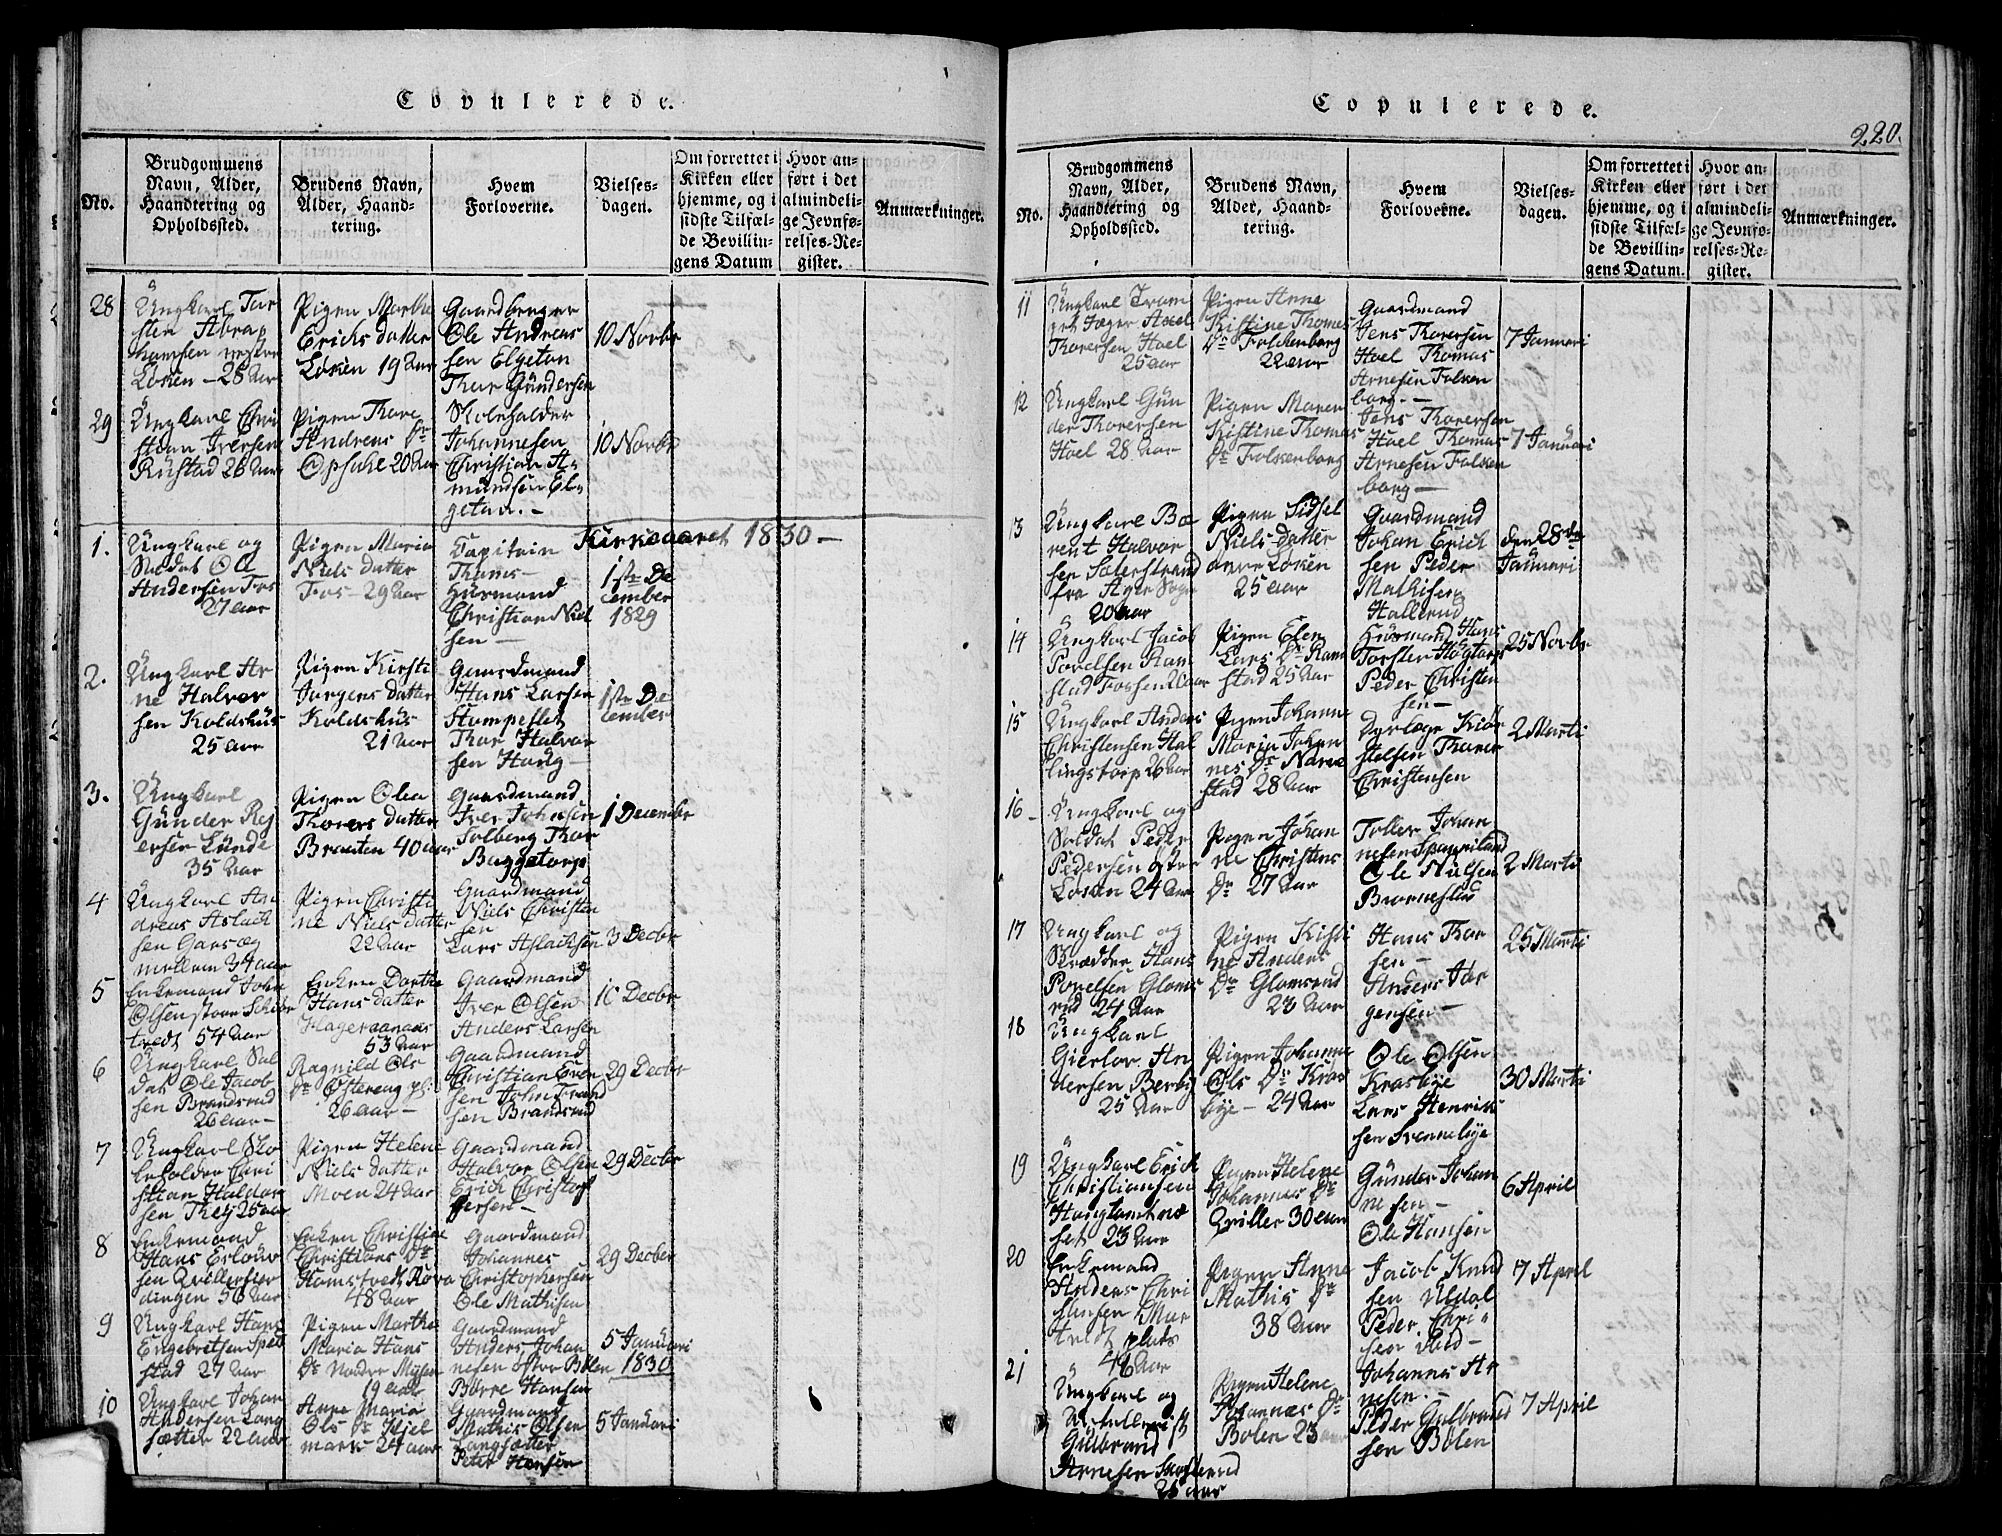 Copulerede.
No.
Brudgommens
Navn, Alder,
Haandtering og
Opholdssted.
Brudens Navn,
Alder, Haand-
tering.
Hvem
Forloverne.
Vielses-
dagen.
Om forrettet i
Kirken eller
hjemme, og i
sidste Tilfæl-
de Bevillin-
gens Datum
Hvor an-
ført i det
almindeli-
ge Jevnfø-
relses-Re-
gister.
Anmærkninger.
28
Ungkarl Tor
sten Abra
hamsen vestre
Løken - 28 Aar
Pigen Marthe
Erichs datter
Løken 19 Aar
Gaardbruger
Ole Andreas
sen Elgeton
Thor Gundersen
10 Novbr
29
Ungkarl Chri
stian Iversen
Rustad 26 Aar
Pigen Thore
Andreas Dr
Opsahl 20 Aar
Skoleholder
Johannesen
Christian A-
mundsen El-
geton. -
10 Novbr
Kirkeaaret 1830 -
1.
Ungkarl og
Soldat Ole
Andersen Fos
27 aar
Pigen Maria
Niels datter
Fos - 29 Aar
Capitain
Thams -
Husmand
Christian Niel
sen -
1ste De
cember
1829
2.
Ungkarl Ar
ne Halvor
sen Koldshus
25 aar
Pigen Kirsti
Jørgens datter
Koldshus
21 Aar
Gaardmand
Hans Larsen
Stumpeslet
Thor Halvor
sen Haug -
1ste De
cember
3.
Ungkarl
Gunder Rej
ersen Lunde
35 Aar
Pigen Olea
Thorers datter
Braaten 40 aar
Gaardmand
Iver Johnsen
Solberg Thor
Buggetorp
1 December
4
Ungkarl An
dreas Aslach
sen Garsæg
mellem 34 aar
Pigen Christi
ne Niels datter
22 Aar
Gaardmand
Niels Christen
sen
Lars Aslachsen
3 Decbr
5
Enkemand John
Olsen store
54 Aar
Enken Dorthe
Hans datter
53 Aar
Gaardmand
Iver Olsen
Anders Larsen
10 Decbr
6
Ungkarl Sol
dat Ole Jacob
sen Brandsrud
26 aar -
Ragnild Ols
Dr Østereng pl:
26 aar -
Gaardmand
Christian Even
sen John
sen Brandsrud
29 Decbr
7
Ungkarl Sko
leholder Chri
stian Haldor
sen Thej 25 aar
Pigen Helene
Niels datter
Moen 24 aar
Gaardmand
Halvor Olsen
Erich Christof
fersen -
29 Decbr
8
Enkemand
Hans
sen
56 Aar
Enken Christine
Christians Dr
48 Aar
Gaardmand
Johannes
Christophersen
Ole Mathisen
29 Decbr
9
Ungkarl Hans
Engebretsen
stad 27 Aar
Pigen Marthe
Maria Hans
Dr Nordre Mysen
19 aar
Gaardmand
Anders Johan
nesen østre Bølen
Børre Hansen
5 Januari
1830
10
Ungkarl Johan
Andersen Lang
sætter 22 aar
Anne Maria
Ols Dr Hjel
mark 24 aar
Gaardmand
Mathis Olsen
Langsætter
Peter Hansen
5 Januari
Copulerede.
220.
No.
Brudgommens
Navn, Alder,
Haandtering og
Opholdssted.
Brudens Navn,
Alder, Haand-
tering.
Hvem
Forloverne.
Vielses-
dagen.
Om forrettet i
Kirken eller
hjemme, og i
sidste Tilfæl-
de Bevillin-
gens Datum.
Hvor an-
ført i det
almindeli-
ge Jevnfø-
relses-Re-
gister.
Anmærkninger.
11
Ungkarl Trom
pet Jæger Axel
Thoresen Hoel
25 aar
Pigen Anne
Kistine Thomes
Dr Folckenborg
22 aar
Gaardmand
Jens Thorersen
Hoel Thomas
Arnesen Folken
borg. -
7 Januari
12
Ungkarl Gun
der Thorersen
Hoel 28 Aar
Pigen Maren
Kistine Thomas
Dr Folkenborg
Jens Thorersen
Hoel Thomas
Arnesen Falken
borg -
7 Januari
13
Ungkarl Be
rent Halvor
sen Solerstrand
fra Sogn
20 aar
Pigen Sidsel
Niels datter
Løken
25 aar
Gaardmand
Johan Erich
sen Peder
Mathisen
Hallerud
den 28de
Januari
14
Ungkarl Jacob
Povelsen Ram
stad Fossen
Pigen Elen
Lars Dr Ram
stad 25 Aar
Husmand Hans
Torsten
Peder Christen
sen -
25 Novbr
15
Ungkarl Anders
Christensen Hal
lingstorp 26 Aar
Pigen Johanne
Maria Johan
nes Dr Nare
stad 28 Aar
Thorer
Christensen
2 Marti
16 -
Ungkarl og
Soldat Peder
Pedersen østre
Løken 24 Aar
Pigen Johan
ne Christens
Dr 27 Aar
Toller Johan
nesen
Ole Nielsen
Bjørnestad
2 Marti
17
Ungkarl og
Skrædder Hans
Povelsen Gloms
rud 24 Aar
Pigen Kisti
ne Anders
Dr Glomsrud
23 Aar
Hans Thor
sen -
Anders Jør
gensen -
25 Marti
18
Ungkarl
Gierlov An
dersen Berby
25 Aar
Pigen Johanne
Ols Dr Kras
bye - 24 Aar
Ole Olsen
Krasbye
Lars Henrik
sen Svennebye
30 Marti
19
Ungkarl Erich
Christiansen
Haugtomt næ
set 23 Aar
Pigen Helene
Johannes Dr
Qviller 30 aar
Gunder Johan
nesen -
Ole Hansen
6 April
20
Enkemand
Anders Chri
stiansen Mor
tvedt plats
46 Aar
Pigen Anne
Mathis Dr
38 Aar
Jacob Knud
sen Uldal
Peder Chri-
sen
7 April
21
Ungkarl og
Gulbrand
Arnesen
26 aar
Pigen Helene
Johannes Dr
Bølen 23 aar
Johannes Ar
nesen. -
Peder Gulbrand
sen Bølen
7 April